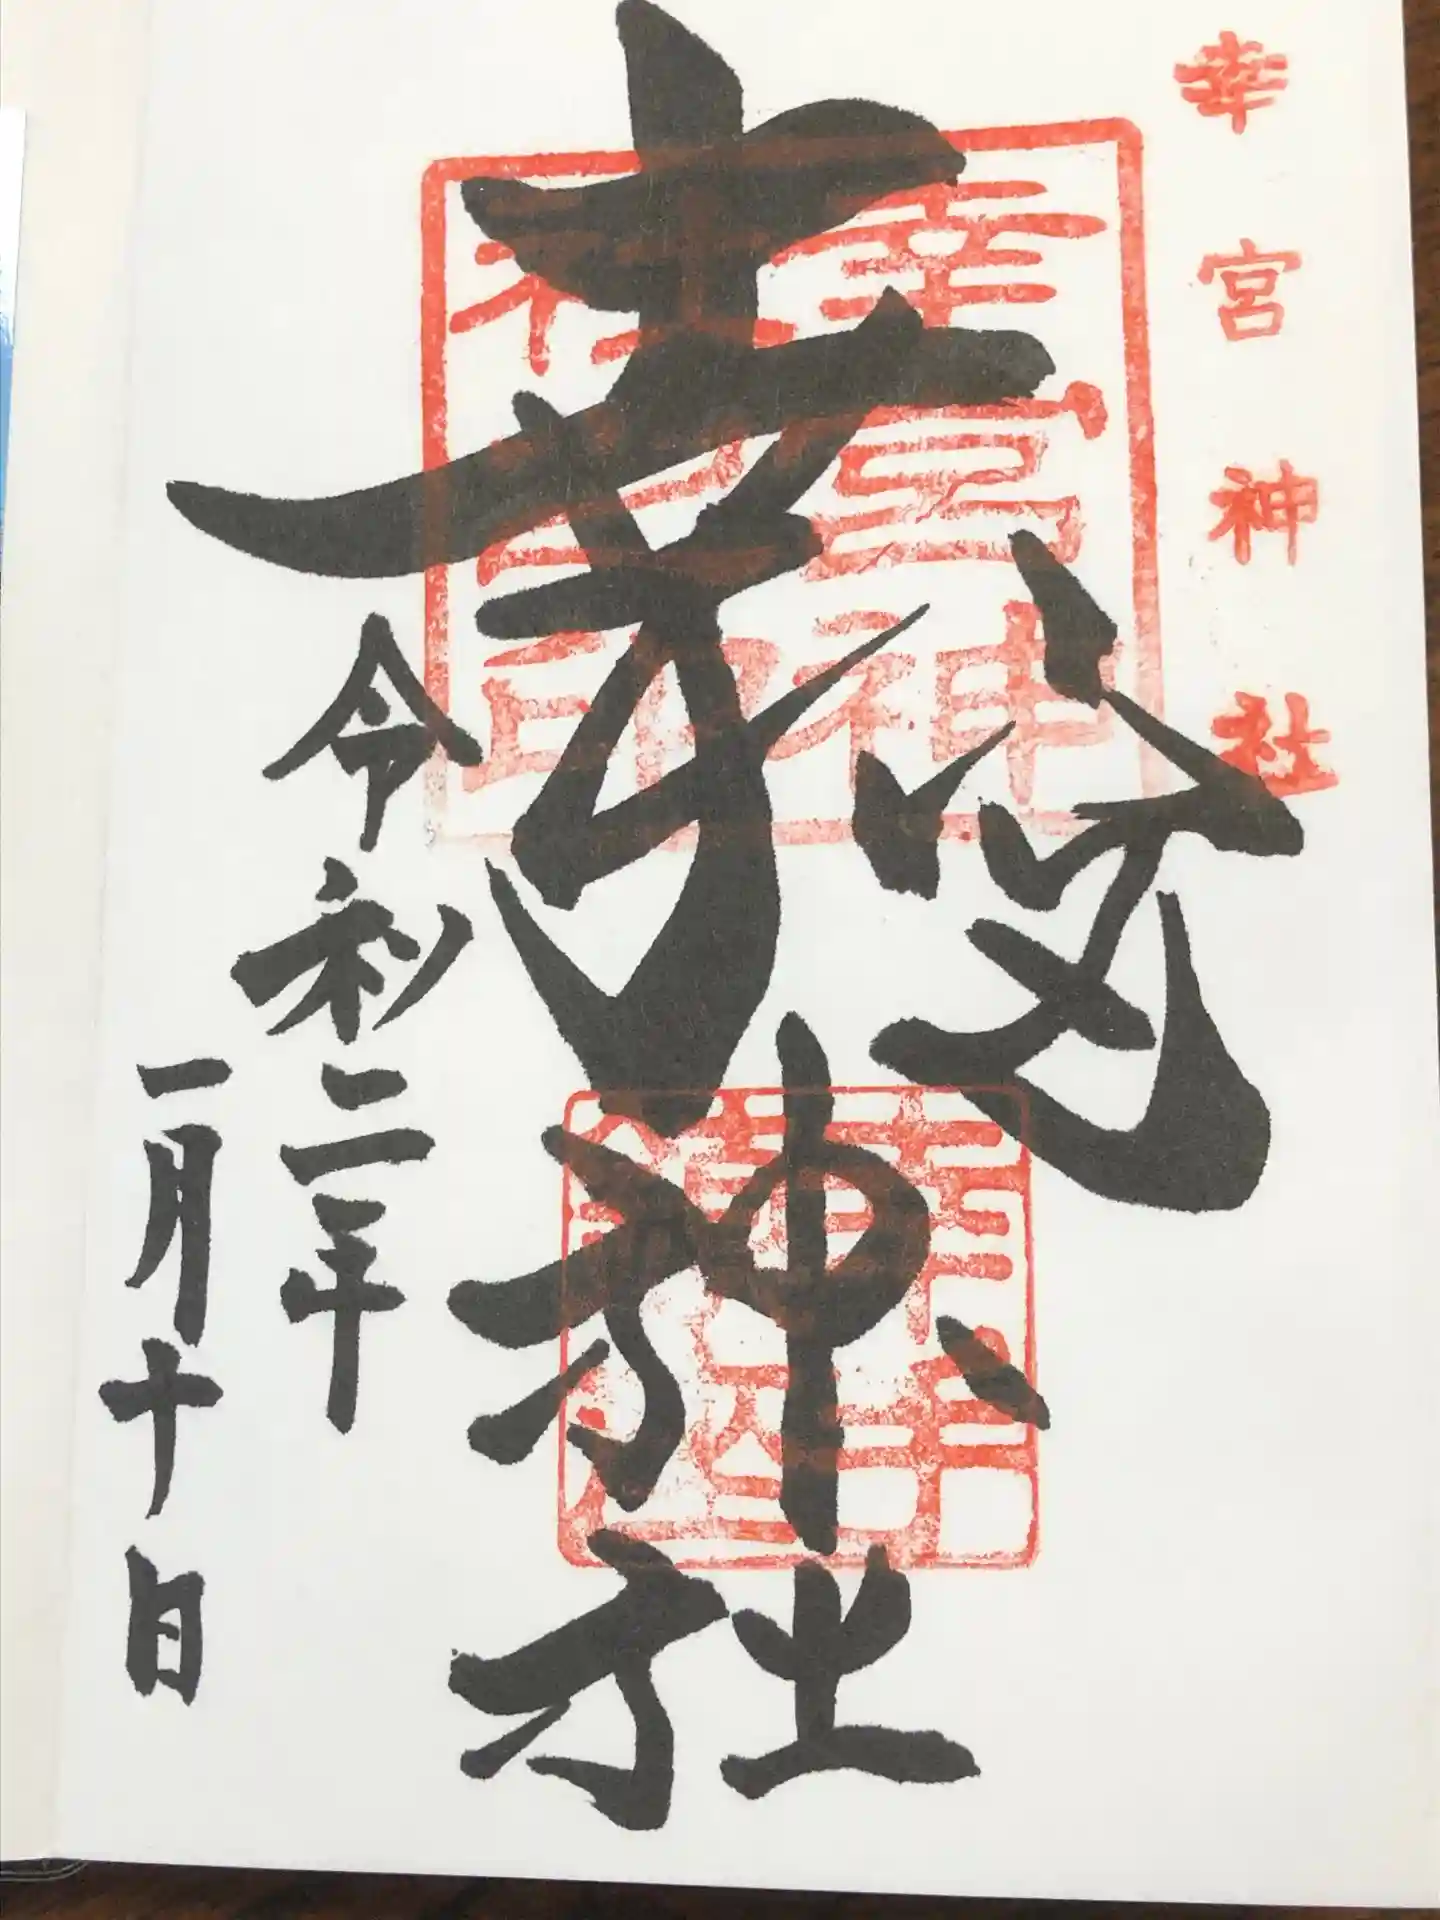 幸宮神社
幸宮神社
幸宮神
社
印
令和二年
一月十日